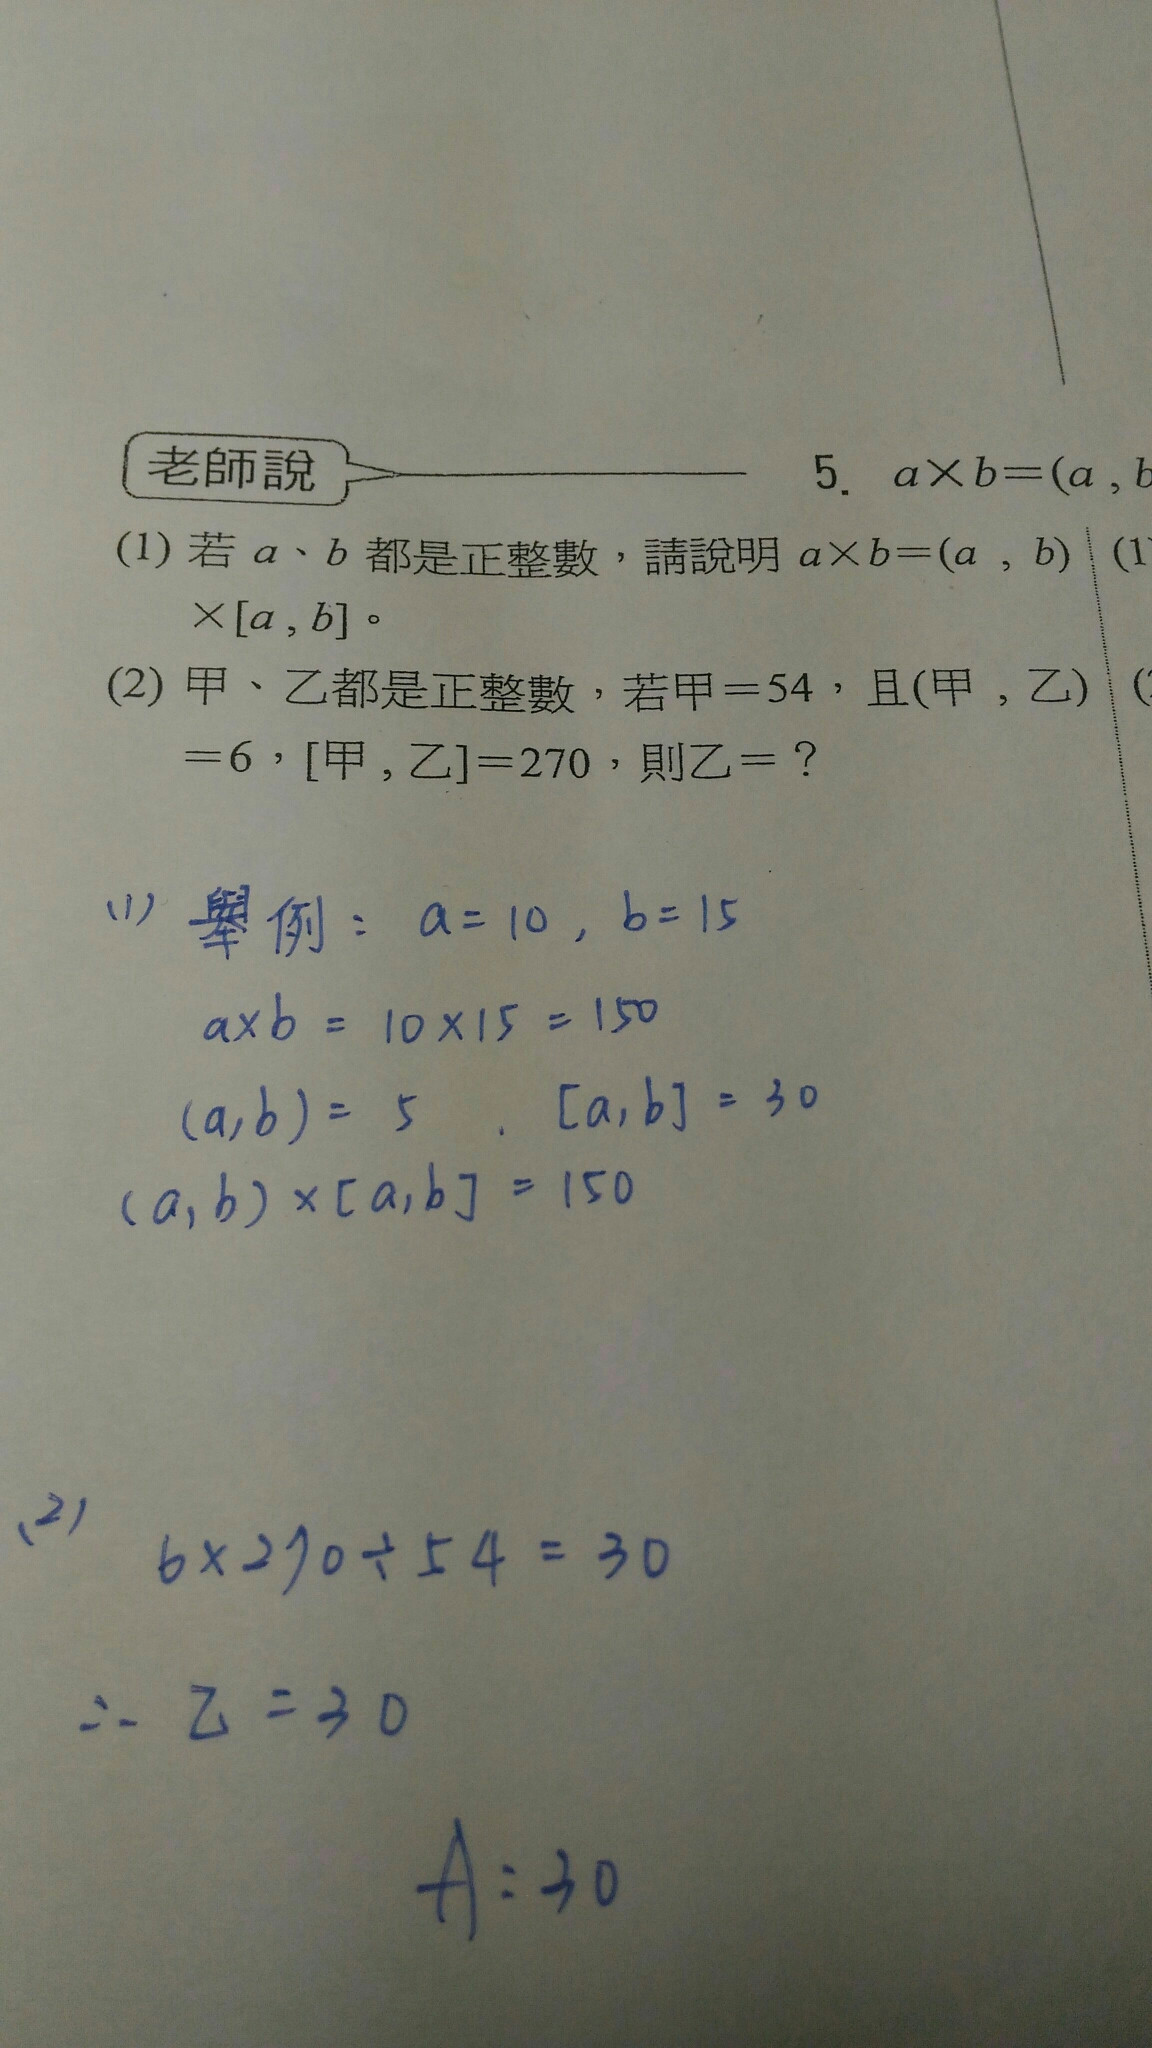 老師說
5. a×b=(a , b
(1) 若 a、b 都是正整數，請說明 a×b=(a , b)
×[a , b]。
(1
(2) 甲、乙都是正整數，若甲=54，且(甲 , 乙)
=6，[甲 , 乙]=270，則乙=？
(1) 舉例： a=10, b=15
a×b = 10×15 = 150
(a,b) = 5 . [a,b] = 30
(a,b)×[a,b] = 150
(2)
6×270÷54 = 30
∴ 乙 = 30
A:30